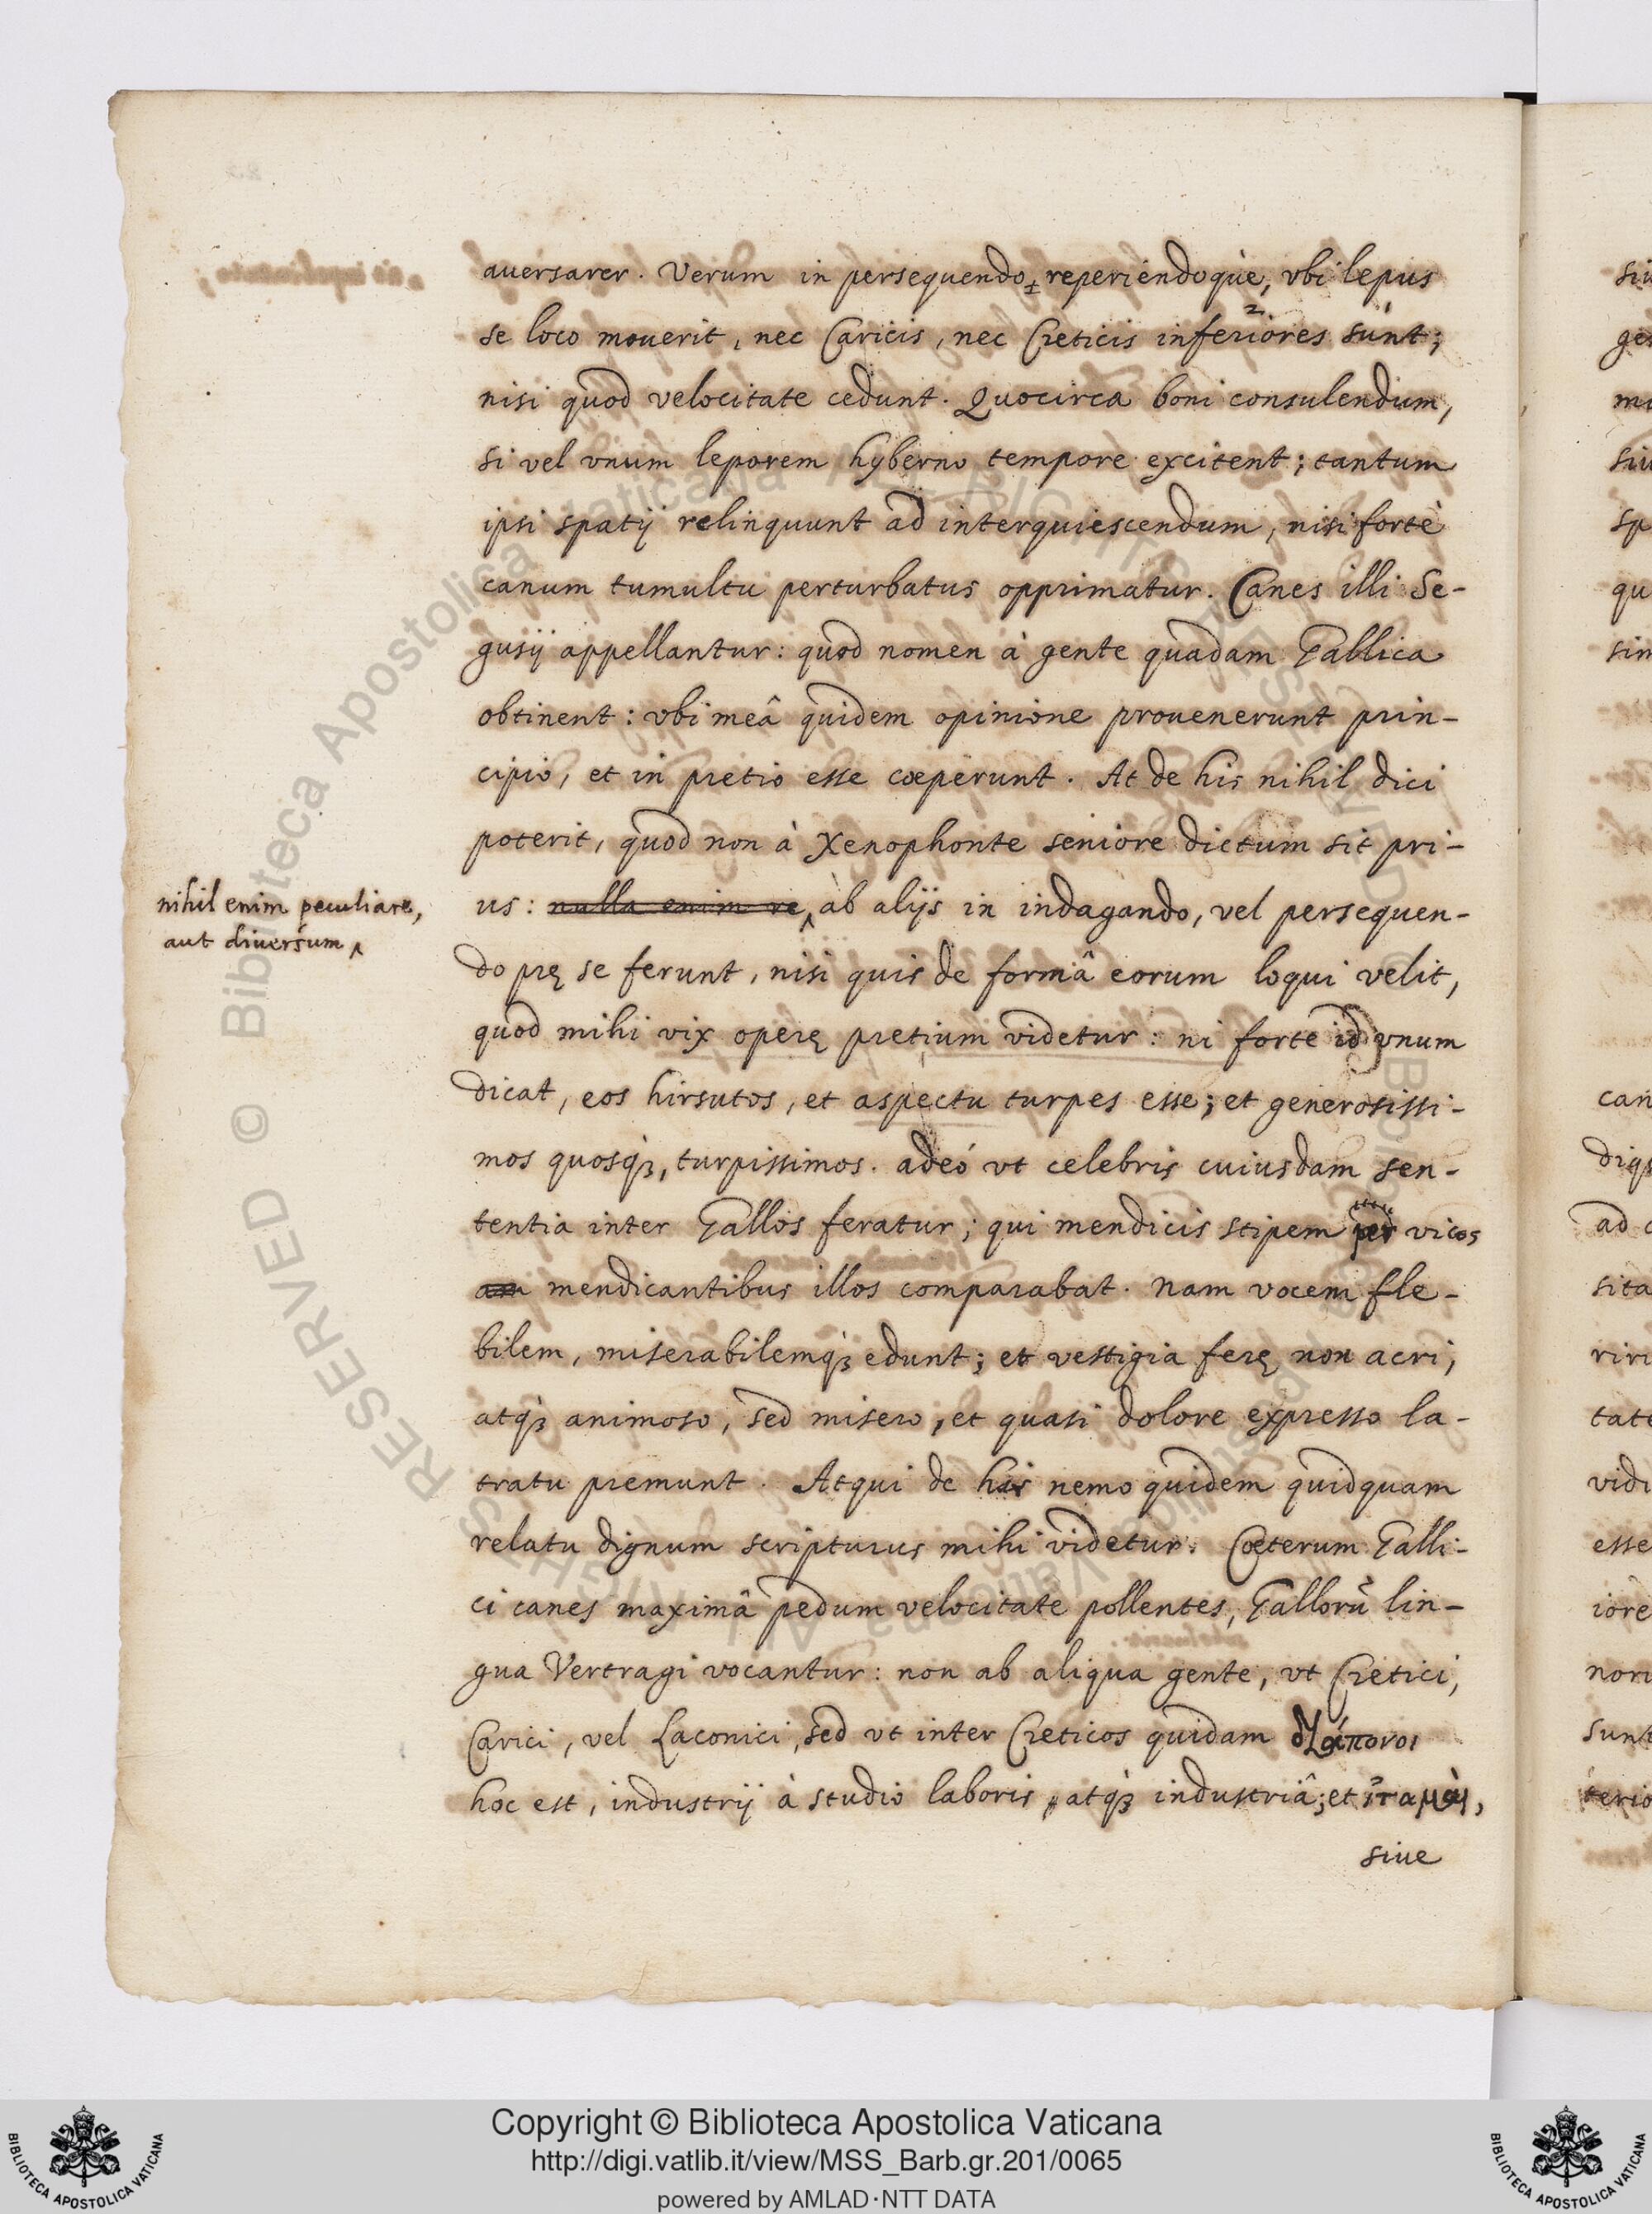 auersarer. Verum in persequendo, reperiendoque, vbi lepus
se loco mouerit, nec Caricis, nec Creticis inferiores sunt;
nisi quod velocitate cedunt. Quocirca boni consulendum,
si vel vnum leporem hyberno tempore excitent; tantum
ipsi spatij relinquunt ad interquiescendum, nisi fortè
canum tumultu perturbatus opprimatur. Canes illi Se-
gusij appellantur: quod nomen à gente quadam Gallica
obtinent: vbi meâ quidem opinione prouenerunt prin-
cipio, et in pretio esse cœperunt. At de his nihil dici
poterit, quod non à Xenophonte seniore dictum sit pri-
nihil enim peculiare,
aut diuersum
us: nulla enim re ab alijs in indagando, vel persequen-
do prę se ferunt, nisi quis de formâ eorum loqui velit,
quod mihi vix operę pretium videtur: ni forte id vnum
dicat, eos hirsutos, et aspectu turpes esse; et generosissi-
mos quosq́ꝫ, turpissimos. adeó vt celebris cuiusdam sen-
tentia inter Gallos feratur; qui mendicis stipem per vicos
mendicantibus illos comparabat. Nam vocem fle-
bilem, miserabilemq́ꝫ edunt; et vestigia ferę non acri,
atq́ꝫ animoso, sed misero, et quasi dolore expresso la-
tratu premunt. Atqui de his nemo quidem quidquam
relatu dignum scripturus mihi videtur. Cœterum Galli-
ci canes maximâ pedum velocitate pollentes, Gallorū lin-
gua Vertragi vocantur: non ab aliqua gente, vt Cretici,
Carici, vel Laconici, sed vt inter Creticos quidam διάπονοι
hoc est, industrij à studio laboris, atq́ꝫ industriâ; et ἰταμαὶ,
siue
Copyright © Biblioteca Apostolica Vaticana
http://digi.vatlib.it/view/MSS_Barb.gr.201/0065
powered by AMLAD·NTT DATA